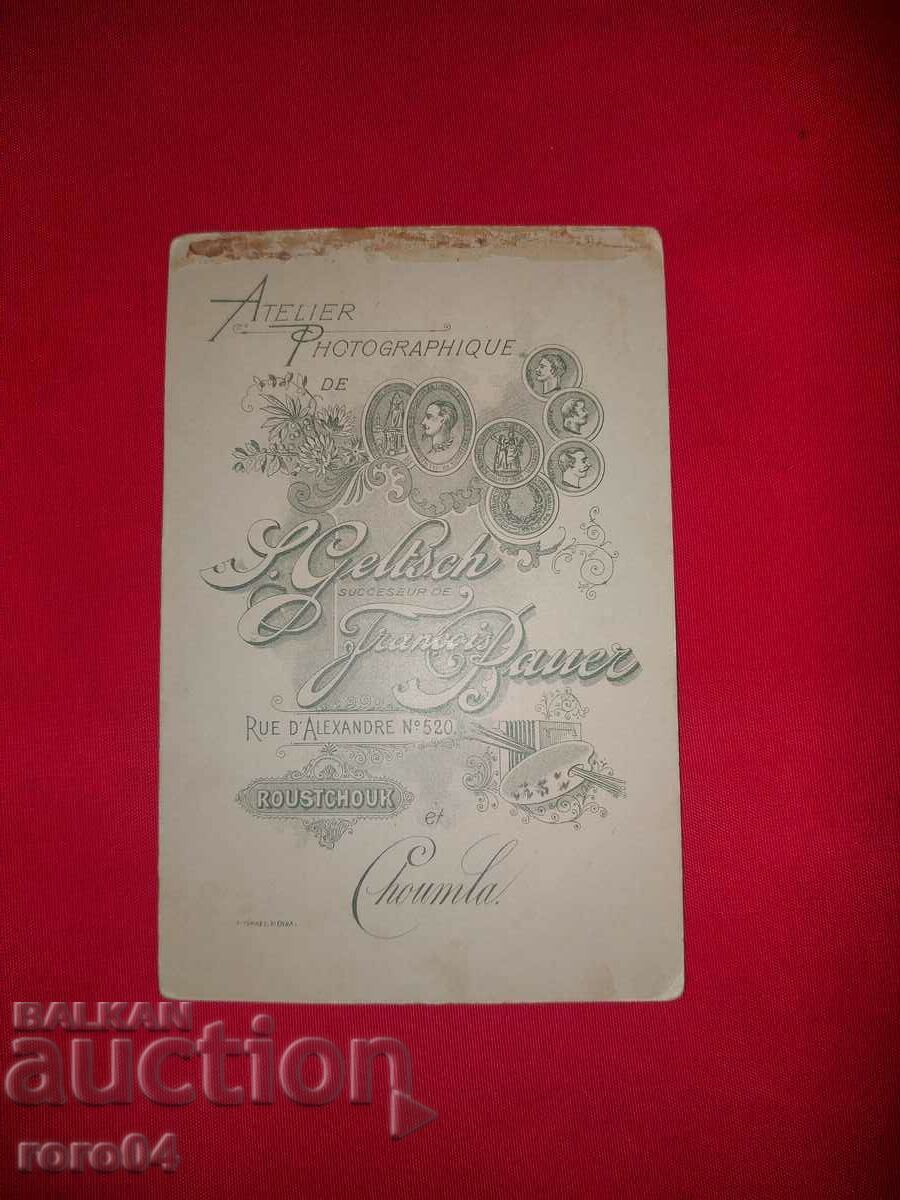 ATELIER
PHOTOGRAPHIQUE
DE
S. Geltsch
SUCCESEUR DE
Francois Bauer
RUE D'ALEXANDRE No 520.
ROUSTCHOUK
et
Choumla.
BALKAN
auction
roro04